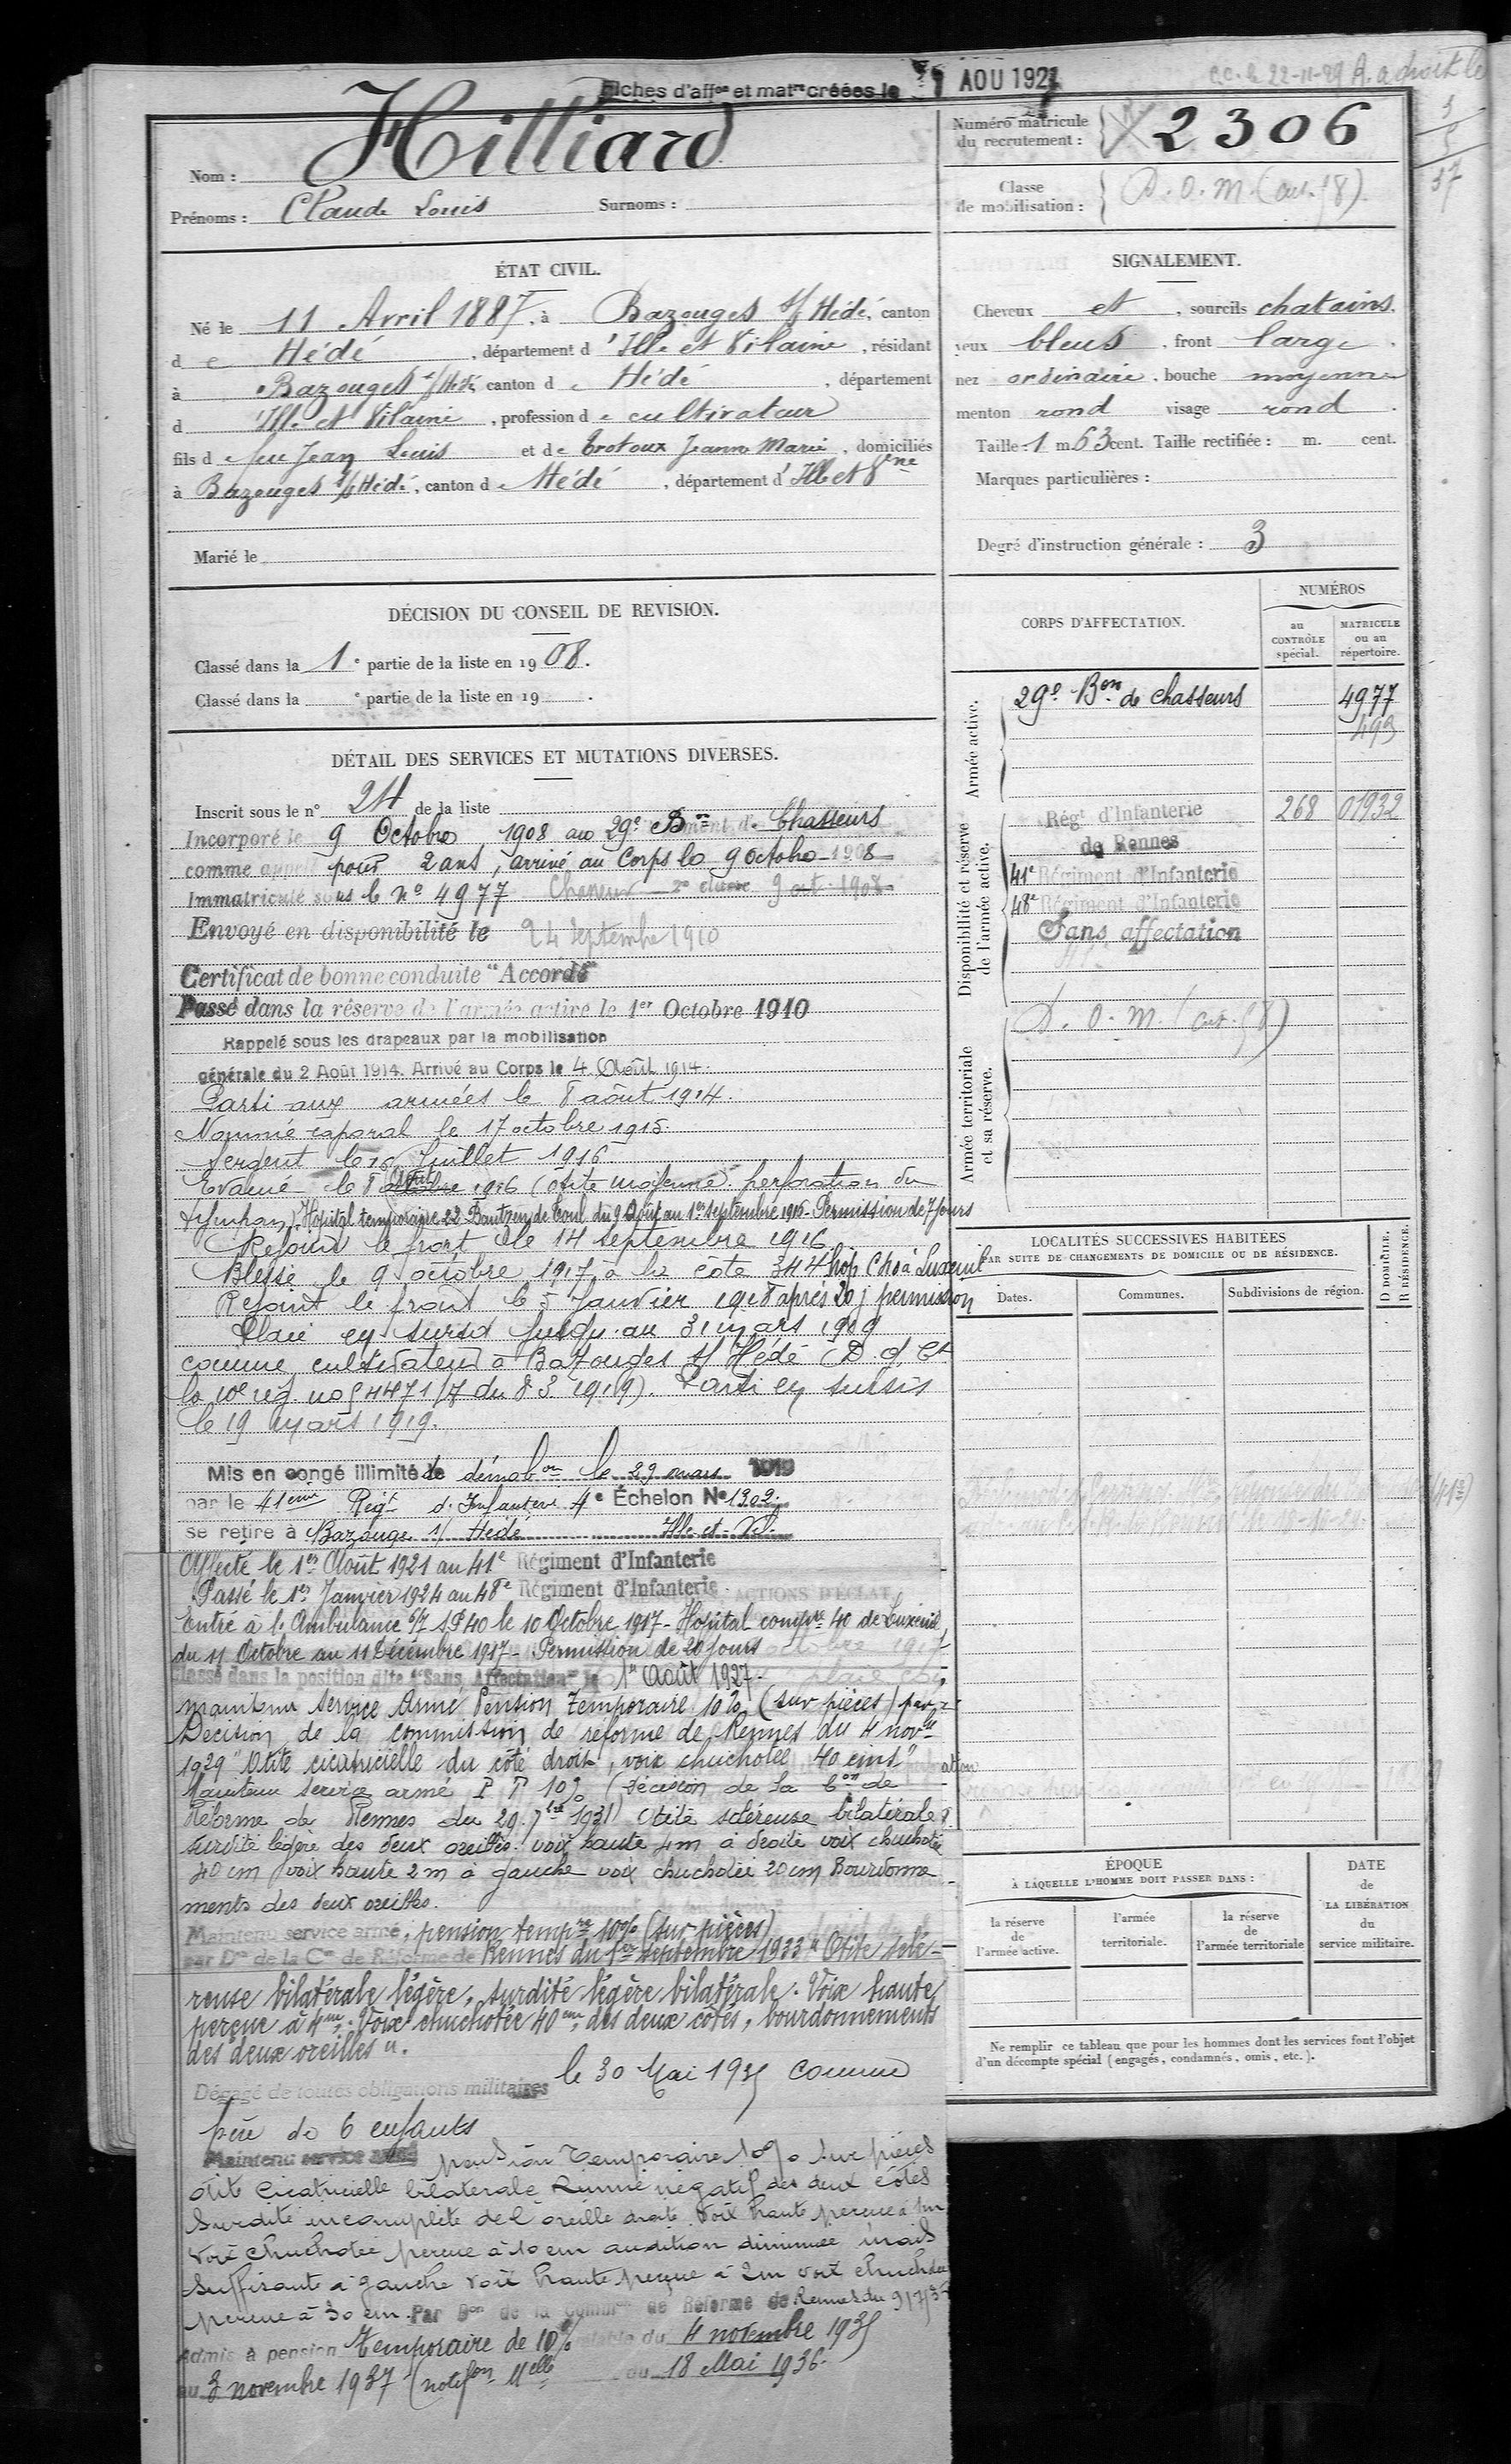 Fiches d'affon et matre créées le AOU 192
C.C. le 22-11-29 R. a droit
Hilliard
Nom :
Prénoms : Claude Louis Surnoms :
Numéro matricule
du recrutement : 2306
Classe
de mobilisation : D. O. M. (art. 58)
ÉTAT CIVIL.
Né le 11 Avril 1887, à Bazouges s/ Hédé, canton
de Hédé, département d'Ille et Vilaine, résidant
à Bazouges s/ Hédé canton de Hédé, département
d'Ille et Vilaine, profession de cultivateur
fils de feu Jean Louis et de Trotoux Jeanne Marie, domiciliés
à Bazouges s/ Hédé, canton de Hédé, département d'Ille et Vne
Marié le
SIGNALEMENT.
Cheveux et, sourcils chatains.
yeux bleus, front large.
nez ordinaire, bouche moyenne
menton rond visage rond.
Taille 1 m 63 cent. Taille rectifiée : m. cent.
Marques particulières :
Degré d'instruction générale : 3
DÉCISION DU CONSEIL DE REVISION.
Classé dans la 1e partie de la liste en 1908.
Classé dans la e partie de la liste en 19 .
DÉTAIL DES SERVICES ET MUTATIONS DIVERSES.
Inscrit sous le n° 24 de la liste
Incorporé le 9 Octobre 1908 au 29e Bon de Chasseurs
comme appelé pour 2 ans, arrivé au Corps le 9 octobre 1908
Immatriculé sous le No 4977 Chasseur 2e classe 9 oct. 1908
Envoyé en disponibilité le 24 Septembre 1910
Certificat de bonne conduite "Accordé"
Passé dans la réserve de l'armée active le 1er Octobre 1910
Rappelé sous les drapeaux par la mobilisation
générale du 2 Août 1914. Arrivé au Corps le 4 Août 1914.
Parti aux armées le 8 août 1914.
Nommé caporal le 17 octobre 1915.
Sergent le 16 Juillet 1916.
Evacué le 8 août 1916 (otite moyenne perforation du
tympan) Hôpital temporaire 22 Bautzen de Toul du 9 Août au 1er septembre 1916 - Permission de 7 jours
Rejoint le front le 14 septembre 1916
Blessé le 9 octobre 1917 à la côte 344 hop. Cre à Luxeuil
Rejoint le front le 5 Janvier 1918 après 20 j permission
Placé en sursis jusqu'au 31 mars 1909
comme cultivateur à Bazouges s/ Hédé (D. G. Ct
la 10e rég. no 54471/7 du 8 3 1919). Parti en sursis
le 19 mars 1919.
Mis en congé illimité de démobon le 29 mars 1919
par le 41eme Régt d'Infanterie 4e Échelon No 1302
se retire à Bazouges s/ Hédé Ille-et-Vil.
Affecté le 1er Août 1921 au 41e Régiment d'Infanterie
Passé le 1er Janvier 1924 au 48e Régiment d'Infanterie
Entré à l'Ambulance 5/7 SP 40 le 10 Octobre 1917 - Hôpital compre 40 de Luxeuil,
du 11 Octobre au 11 Décembre 1917 - Permission de 20 jours
Classé dans la position dite "Sans Affectation" le 1er Août 1927.
maintenu service Armé Pension temporaire 10% (sur pièces) par
Décision de la commission de réforme de Rennes du 4 novbre
1929 "Otite cicatricielle du côté droit, voix chuchotée 40 cms"
Maintenu service armé P T 10% (décision de la Con de
Réforme de Rennes du 29 7bre 1931) Otite scléreuse bilatérale
surdité légère des deux oreilles. voix haute 4m à droite voix chuchotée
40 cm voix haute 2 m à gauche voix chuchotée 20 cm Bourdonne-
ments des deux oreilles.
Maintenu service armé, pension tempre 10% (sur pièces)
par Don de la Con de Réforme de Rennes du 1er septembre 1933 "Otite sclé-
reuse bilatérale légère, surdité légère bilatérale. Voix haute
perçue à 4m. Voix chuchotée 40cm des deux côtés, bourdonnements
des deux oreilles".
Dégagé de toutes obligations militaires le 30 Mai 1935 comme
père de 6 enfants
Maintenu service armé pension temporaire 10% sur pièces
otite cicatricielle bilatérale Rinne négatif des deux côtés
surdité incomplète de l'oreille droite Voix haute perçue à 1m
voix chuchotée perçue à 10 cm audition diminuée mais
suffisante à gauche voix haute perçue à 2m voix chuchotée
perçue à 30 cm. Par Don de la Comm de Réforme de Rennes du 9/7/35
Admis à pension temporaire de 10% du 4 novembre 1935
au 3 novembre 1937 (notifon Melle du 18 Mai 1936.
CORPS D'AFFECTATION.
NUMÉROS
au CONTRÔLE spécial.
MATRICULE ou au répertoire.
Armée active.
29e Bon de Chasseurs 4977
493
Disponibilité et réserve de l'armée active.
Régt d'Infanterie 268 01932
de Rennes
41e Régiment d'Infanterie
48e Régiment d'Infanterie
Sans affectation
Armée territoriale et sa réserve.
D. O. M. (art. 58)
LOCALITÉS SUCCESSIVES HABITÉES
PAR SUITE DE CHANGEMENTS DE DOMICILE OU DE RÉSIDENCE.
Dates. Communes. Subdivisions de région. D DOMICILE. R RÉSIDENCE.
ÉPOQUE
À LAQUELLE L'HOMME DOIT PASSER DANS :
la réserve de l'armée active.
l'armée territoriale.
la réserve de l'armée territoriale
DATE de LA LIBÉRATION du service militaire.
Ne remplir ce tableau que pour les hommes dont les services font l'objet
d'un décompte spécial (engagés, condamnés, omis, etc.).